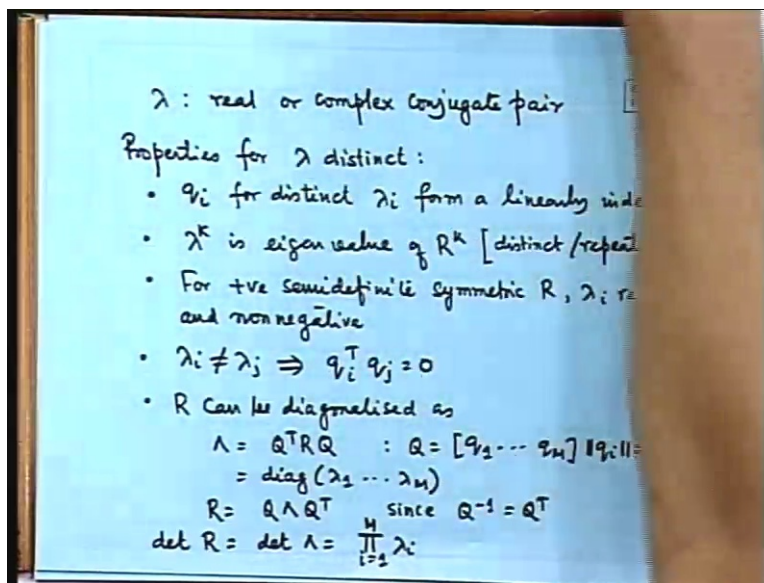 λ : real or complex conjugate pair
Properties for λ distinct :
• qᵢ for distinct λᵢ form a linearly inde
• λᵏ is eigen value of Rᵏ [distinct/repeat
• For +ve semidefinite symmetric R, λᵢ re
and nonnegative
• λᵢ ≠ λⱼ ⇒ qᵢᵀ qⱼ = 0
• R can be diagonalised as
Λ = QᵀRQ : Q = [q₁ ... q_M] ||qᵢ|| =
= diag(λ₁ ... λ_M)
R = QΛQᵀ since Q⁻¹ = Qᵀ
det R = det Λ = ∏ᵢ₌₁ᴹ λᵢ